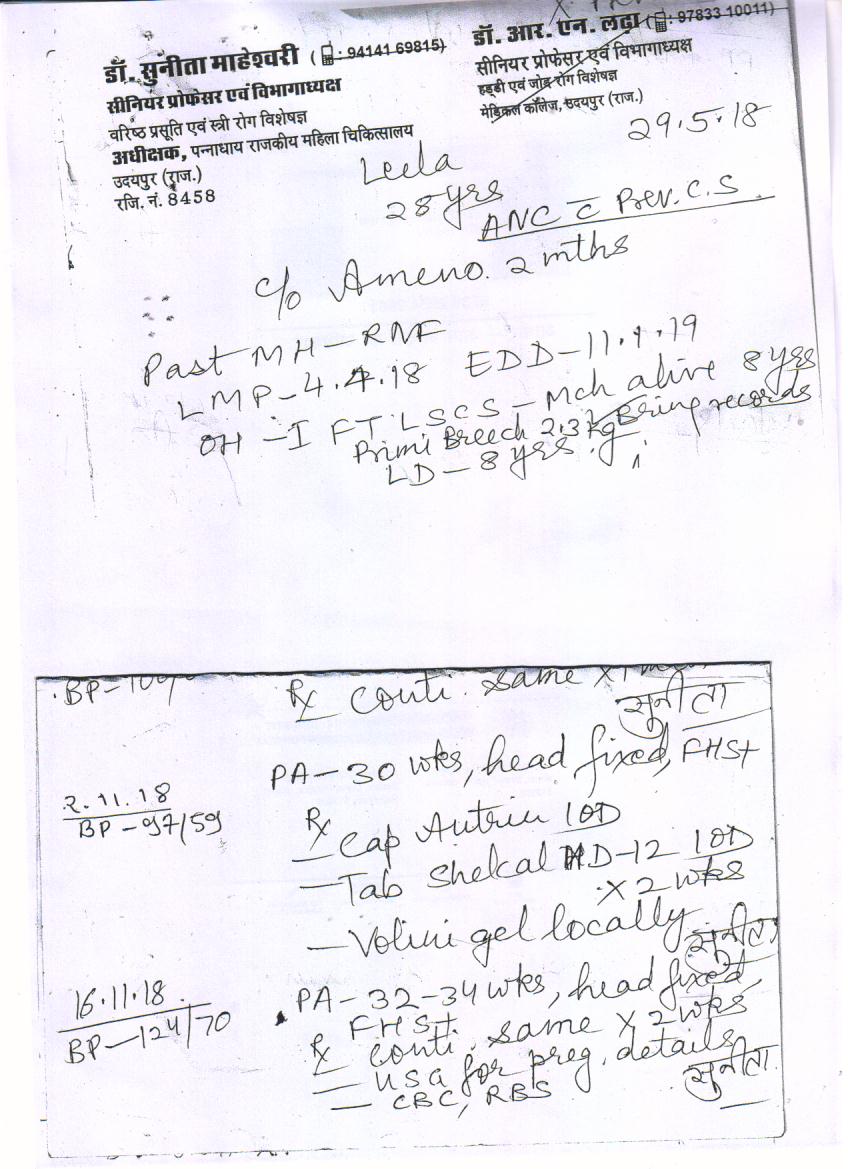 डॉ. सुनीता माहेश्वरी ( : 94141 69815)
सीनियर प्रोफेसर एवं विभागाध्यक्ष
वरिष्ठ प्रसूति एवं स्त्री रोग विशेषज्ञ
अधीक्षक, पन्नाधाय राजकीय महिला चिकित्सालय
उदयपुर (राज.)
रजि. नं. 8458
डॉ. आर. एन. लढ़ा ( : 97833 10011)
सीनियर प्रोफेसर एवं विभागाध्यक्ष
हड्डी एवं जोड़ रोग विशेषज्ञ
मेडिकल कॉलेज, उदयपुर (राज.)
29.5.18
Leela
28 yrs
ANC c̅ Prev. C.S.
c/o Ameno. 2 mths
Past MH - RNF
LMP - 4.4.18 EDD - 11.1.19
OH - I FT LSCS - Mch alive 8 yrs
Primi Breech 2.3 kg Bring records
LD - 8 yrs
BP-
Rx conti. same x
सुनीता
PA - 30 wks, head fixed, FHS+
2.11.18
BP - 97/59
Rx
- Cap Autrin 1OD
- Tab Shelcal HD-12 1OD
x 2 wks
- Volini gel locally
सुनीता
16.11.18
BP - 124/70
PA - 32-34 wks, head fixed,
FHS+
Rx conti. same x 2 wks
- USG for preg. details
- CBC, RBS
सुनीता